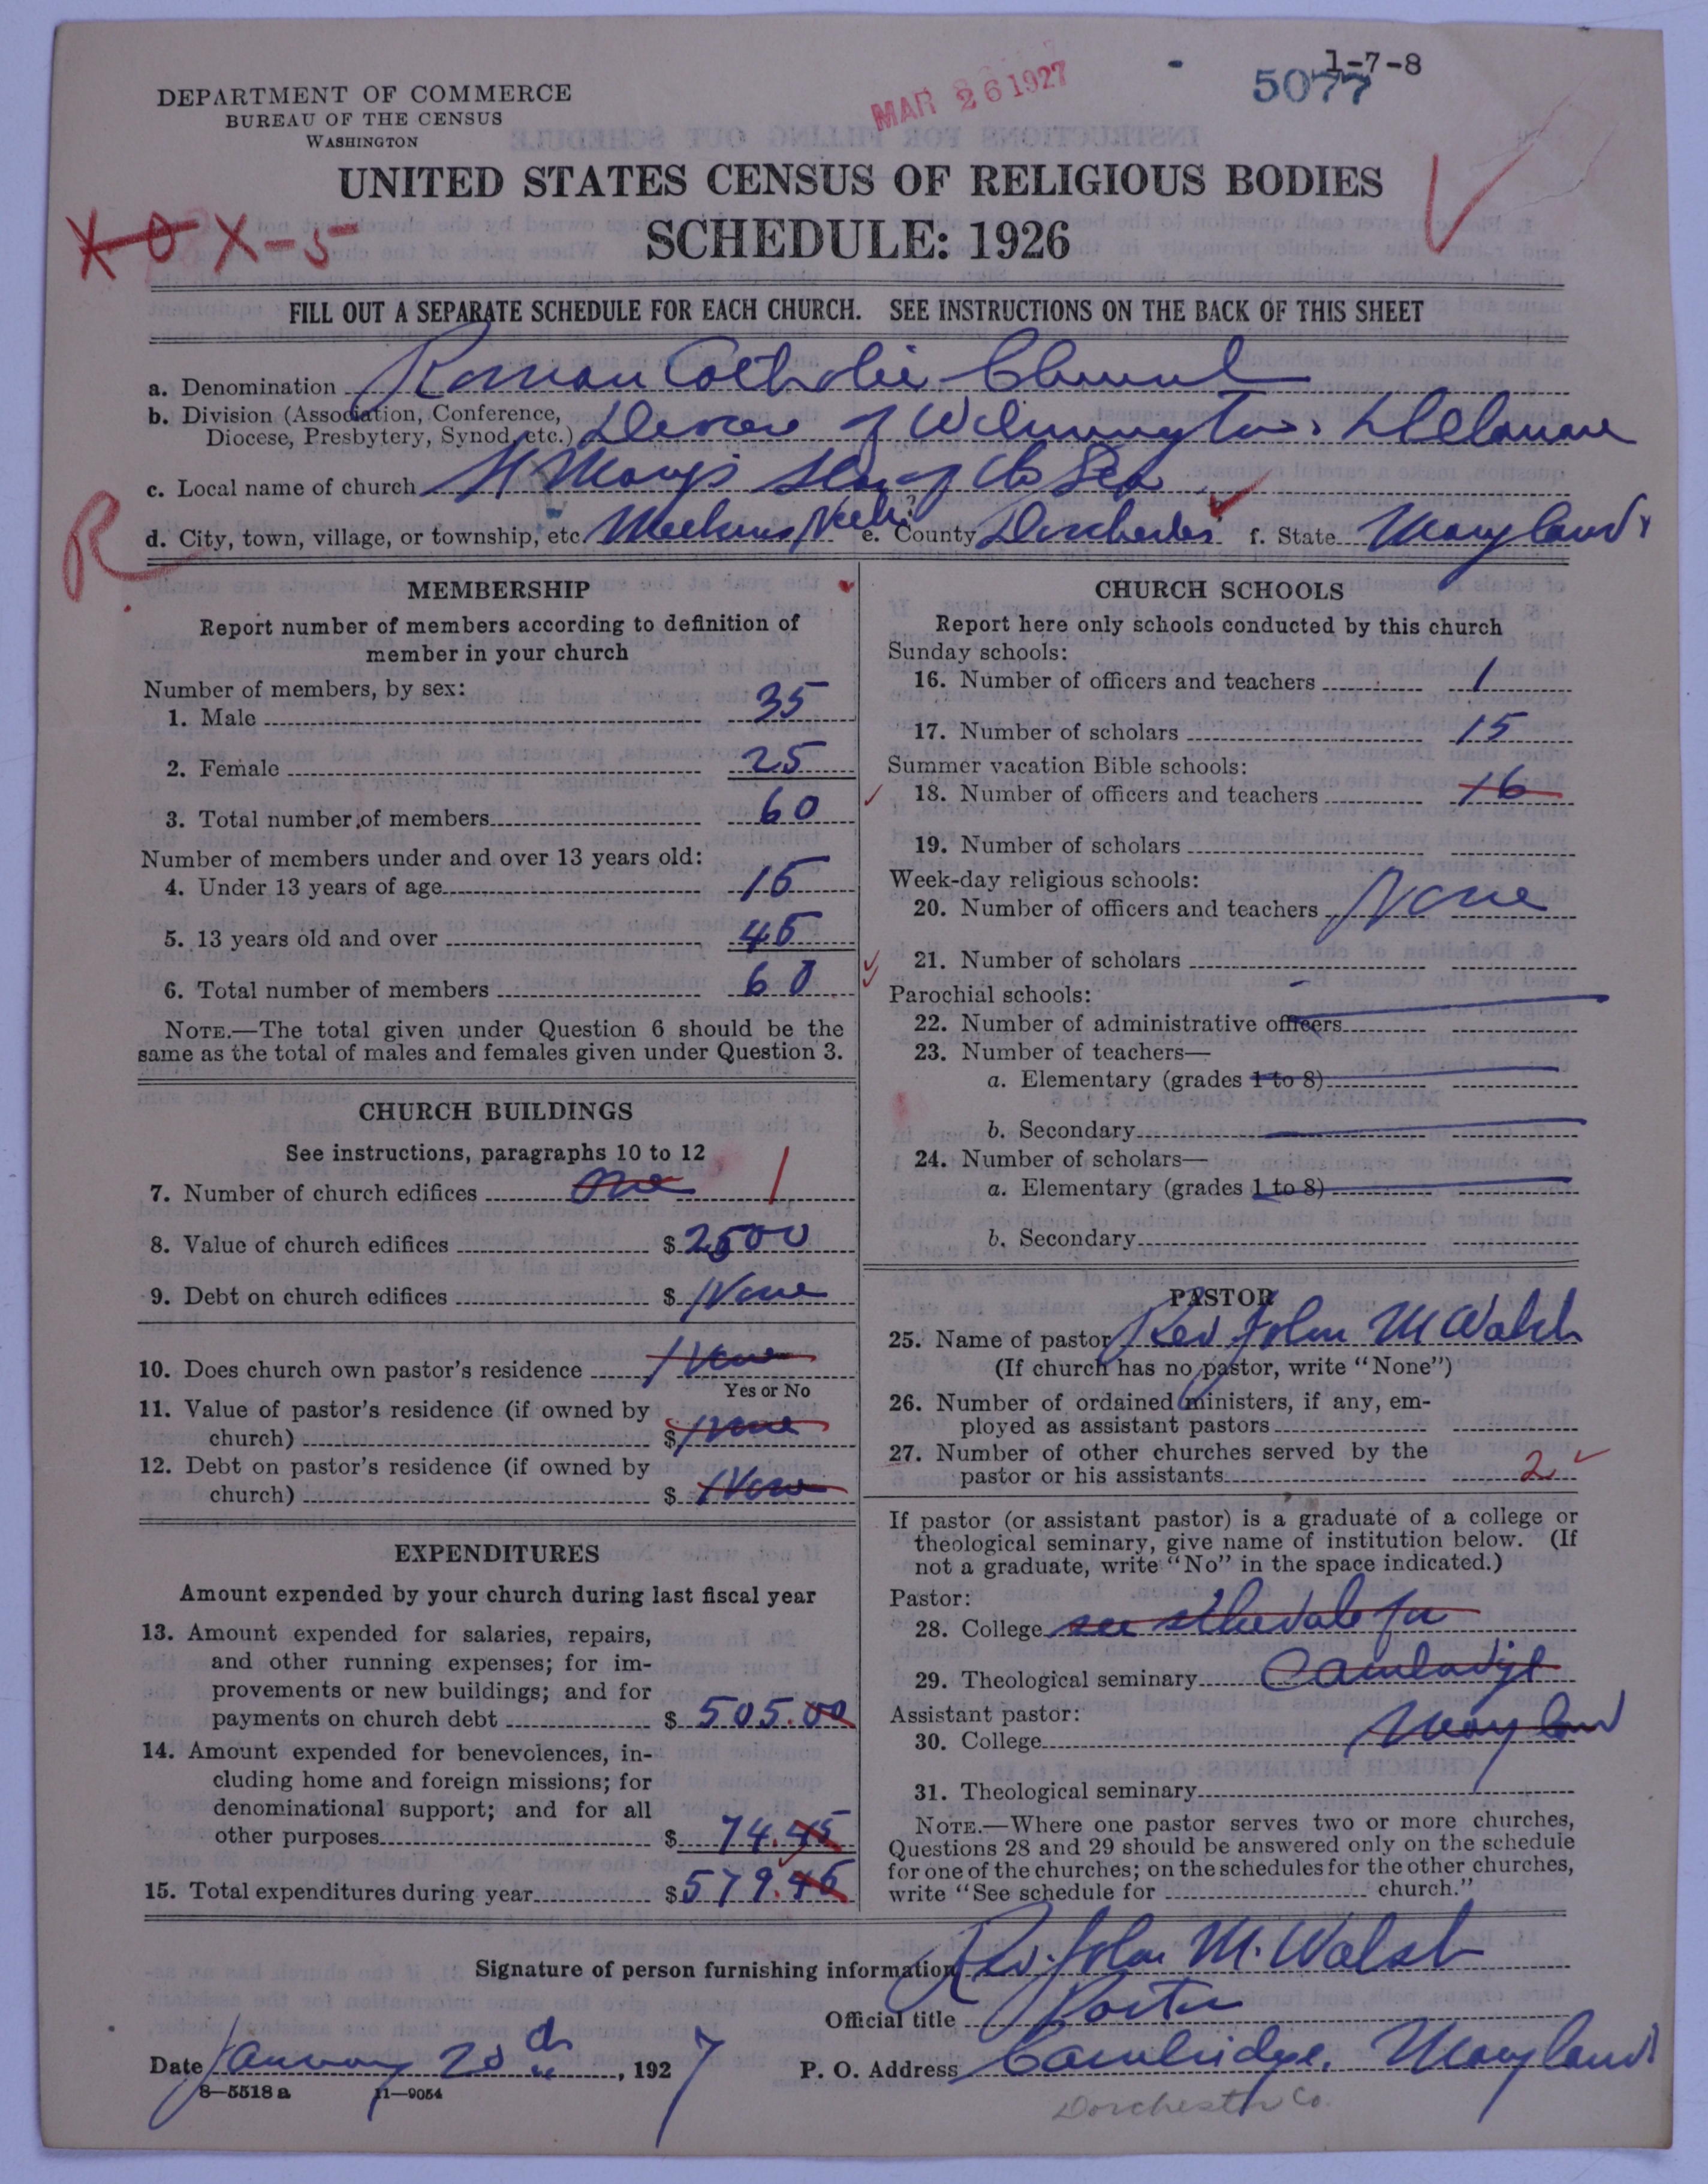 1-7-8
5077
MAR 26 1927
DEPARTMENT OF COMMERCE
BUREAU OF THE CENSUS
WASHINGTON
UNITED STATES CENSUS OF RELIGIOUS BODIES
SCHEDULE: 1926
X-5
FILL OUT A SEPARATE SCHEDULE FOR EACH CHURCH. SEE INSTRUCTIONS ON THE BACK OF THIS SHEET
a. Denomination Roman Catholic Church
b. Division (Association, Conference,
Diocese, Presbytery, Synod, etc.) Diocese of Wilmington, Delaware
c. Local name of church St Mary's Star of the Sea
R
d. City, town, village, or township, etc. Meekins Neck e. County Dorchester f. State Maryland
MEMBERSHIP
Report number of members according to definition of
member in your church
Number of members, by sex:
1. Male 35
2. Female 25
3. Total number of members 60
Number of members under and over 13 years old:
4. Under 13 years of age 15
5. 13 years old and over 45
6. Total number of members 60
NOTE.—The total given under Question 6 should be the
same as the total of males and females given under Question 3.
CHURCH BUILDINGS
See instructions, paragraphs 10 to 12
7. Number of church edifices One 1
8. Value of church edifices $ 2500
9. Debt on church edifices $ None
10. Does church own pastor's residence None
Yes or No
11. Value of pastor's residence (if owned by
church) $ None
12. Debt on pastor's residence (if owned by
church) $ None
EXPENDITURES
Amount expended by your church during last fiscal year
13. Amount expended for salaries, repairs,
and other running expenses; for im-
provements or new buildings; and for
payments on church debt $ 505.00
14. Amount expended for benevolences, in-
cluding home and foreign missions; for
denominational support; and for all
other purposes $ 74.45
15. Total expenditures during year $ 579.45
CHURCH SCHOOLS
Report here only schools conducted by this church
Sunday schools:
16. Number of officers and teachers 1
17. Number of scholars 15
Summer vacation Bible schools:
18. Number of officers and teachers 16
19. Number of scholars
Week-day religious schools:
20. Number of officers and teachers None
21. Number of scholars
Parochial schools:
22. Number of administrative officers
23. Number of teachers—
a. Elementary (grades 1 to 8)
b. Secondary
24. Number of scholars—
a. Elementary (grades 1 to 8)
b. Secondary
PASTOR
25. Name of pastor Rev John M Walsh
(If church has no pastor, write "None")
26. Number of ordained ministers, if any, em-
ployed as assistant pastors
27. Number of other churches served by the
pastor or his assistants 2
If pastor (or assistant pastor) is a graduate of a college or
theological seminary, give name of institution below. (If
not a graduate, write "No" in the space indicated.)
Pastor:
28. College see schedule for
29. Theological seminary Cambridge
Assistant pastor:
30. College Maryland
31. Theological seminary
NOTE.—Where one pastor serves two or more churches,
Questions 28 and 29 should be answered only on the schedule
for one of the churches; on the schedules for the other churches,
write "See schedule for church."
Signature of person furnishing information Rev. John M. Walsh
Official title Pastor
Date January 20th, 1927 P. O. Address Cambridge, Maryland
8-5518 a 11-9054
Dorchester Co.